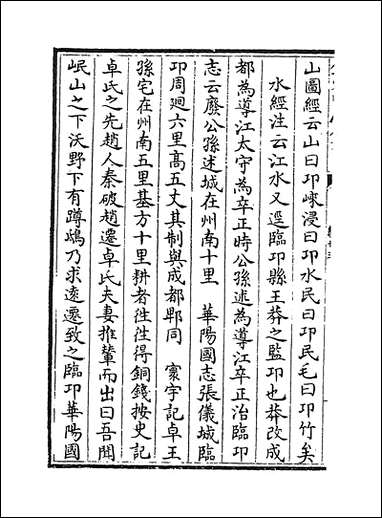 山圖經云山曰邛崍浸曰邛水民曰邛民毛曰邛竹矣
水經注云江水又逕臨邛縣王莽之監邛也莽改成
都為導江太守為卒正時公孫述為導江卒正治臨邛
志云廢公孫述城在州南十里　華陽國志張儀城臨
邛周廻六里高五丈其制與成都郫同　寰宇記卓王
孫宅在州南五里基方十里耕者往往得銅錢按史記
卓氏之先趙人秦破趙遷卓氏夫妻推輦而出曰吾聞
岷山之下沃野下有蹲鴟乃求遠遷致之臨邛華陽國